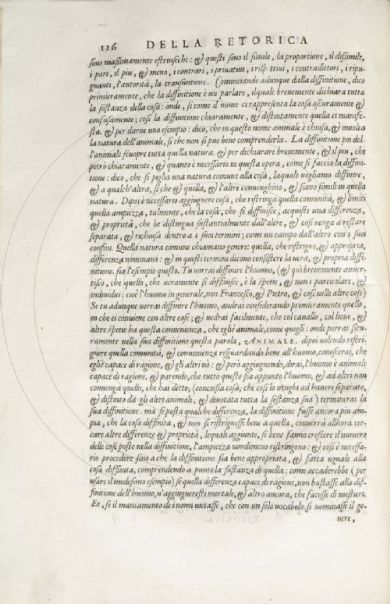 126 DELLA RETORICA
sono massimamente estrinsechi: & questi sono il simile, la proportione, il dissimile,
i pari, il piu, & meno, i contrari, i privativi, i rispettivi, i contradittori, i ripu-
gnanti, l'autorità, la transuntione. Cominciando adunque dalla diffinitione, dico
primieramente, che la diffinitione è un parlare, ilquale brevemente dichiara tutta
la sostanza della cosa: onde, si come il nome ci rappresenta la cosa oscuramente &
confusamente; cosi la diffinitione chiaramente, & distintamente quella ci manife-
sta. & per darne uno esempio: dico, che in questo nome animale è chiusa, & involta
la natura dell'animale, si che non si puo bene comprenderla. La diffinitione poi del-
l'animale scuopre tutta quella natura. & per dichiarare brevemente, & il piu, che
potrò chiaramente, & quanto è necessario in questa opera, come si faccia la diffini-
tione: dico, che si piglia una natura comune alla cosa, laquale vogliamo diffinire,
& a qualch'altra, si che & quella, & l'altre convenghino, & siano simili in quella
natura. Dipoi è necessario aggiugnere cosa, che ristringa quella comunità, & limiti
quella ampiezza, talmente, che la cosa, che si diffinisce, acquisti una differenza,
& proprietà, che la distingua sostantialmente dall'altre, & cosi venga a restare
separata, & rachiusa dentro a suoi termini; come un campo dall'altro con i suoi
confini. Quella natura comune chiamano genere: quella, che ristrigne, & appropria,
differenza nominano: & in questi termini dicono consistere la vera, & propria diffi-
nitione. sia l'esempio questo. Tu vorrai diffinire l'huomo, & qui brevemente avver-
tisco, che quello, che veramente si diffinisce, è la spetie, & non i particolari, &
individui: cioè l'huomo in generale, non Francesco, & Pietro, & cosi nelle altre cose)
Se tu adunque vorrai diffinire l'huomo, andrai considerando primieramente quello,
in che ei conviene con altre cose: & vedrai facilmente, che col cavallo, col bove, &
altre spetie ha questa convenenza, che egli è animale, come quegli: onde porrai sicu-
ramente nella sua diffinitione questa parola, ANIMALE. dipoi volendo ristri-
guere quella comunità, & convenenza risguardando bene all'huomo, conoscerai, che
egli è capace di ragione, & gli altri no: & però aggiugnendo, dirai, l'huomo è animale
capace di ragione. & parendo, che tutto questo sia appunto l'huomo, & ad altri non
convenga quello, che hai detto, (conciosia cosa, che cosi lo venghi ad havere separato,
& distinto da gli altri animali, & dinotata tutta la sostanza sua) terminerai la
sua diffinitione. ma se posta qualche differenza, la diffinitione fusse ancora piu am-
pia, che la cosa diffinita, & non si ristrignesse bene a quella, converrà allhora cer-
care altre differenze & proprietà, lequali aggiunte, se bene fanno crescere il numero
delle cose poste nella diffinitione, l'ampiezza nondimeno ristringono: & cosi è necessa-
rio procedere sino a che la diffinitione sia bene appropriata, & fatta uguale alla
cosa diffinita, comprendendo a punto la sostanza di quella: come accaderebbe (per
usare il medesimo esempio) se quella differenza capace di ragione, non bastasse alla dif-
finitione dell'huomo, v'aggiugneresti mortale, & altro ancora, che facesse di mestieri.
Et, se il mancamento de i nomi vietasse, che con un solo vocabolo si nominasse il ge-
nere,